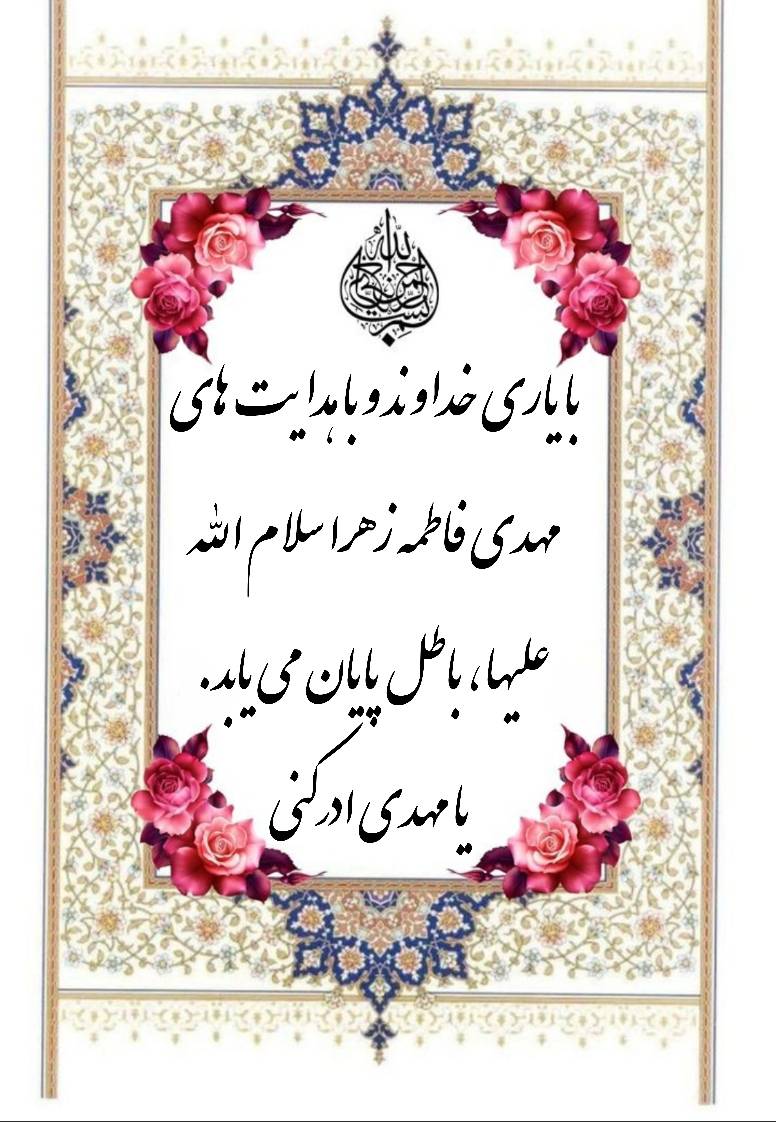 بسم الله الرحمن الرحیم
با یاری خداوند و با هدایت های
مهدی فاطمه زهرا سلام الله
علیها، باطل پایان می یابد.
یا مهدی ادرکنی